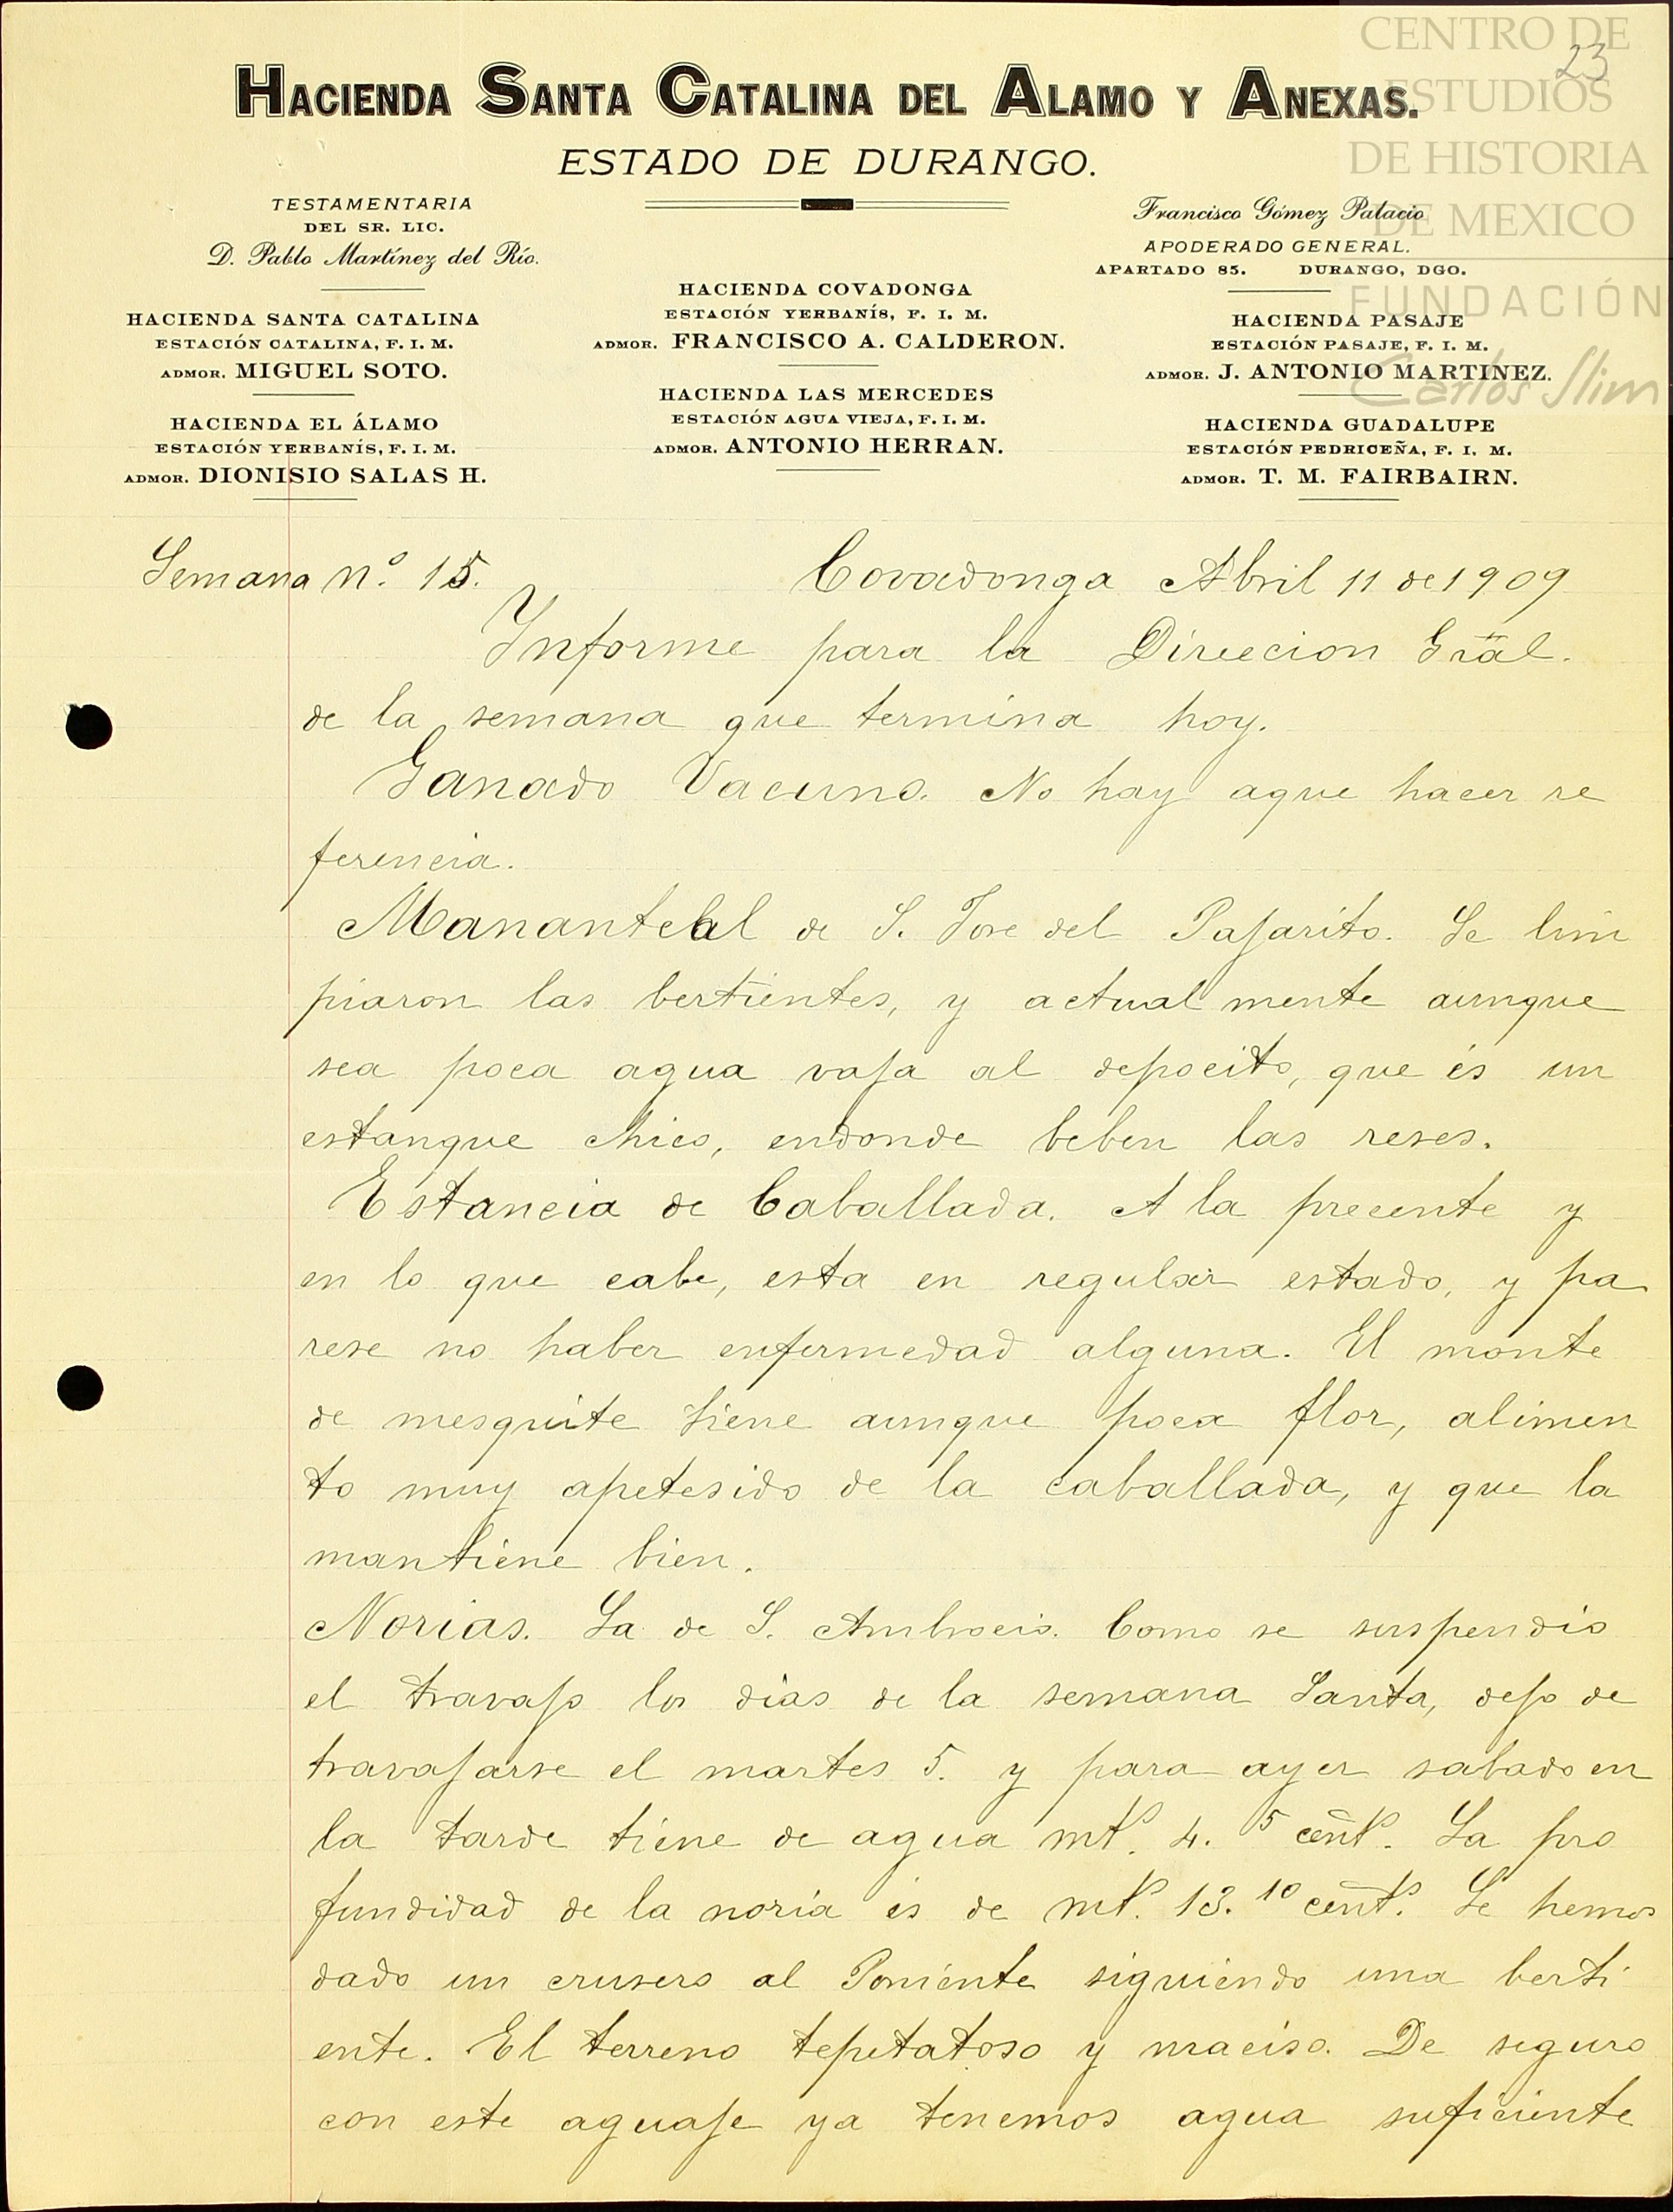 CENTRO DE
ESTUDIOS
DE HISTORIA
DE MEXICO
FUNDACIÓN
Carlos Slim
23
HACIENDA SANTA CATALINA DEL ALAMO Y ANEXAS.
ESTADO DE DURANGO.
TESTAMENTARIA
DEL SR. LIC.
D. Pablo Martínez del Río.
HACIENDA SANTA CATALINA
ESTACIÓN CATALINA, F. I. M.
ADMOR. MIGUEL SOTO.
HACIENDA EL ÁLAMO
ESTACIÓN YERBANÍS, F. I. M.
ADMOR. DIONISIO SALAS H.
HACIENDA COVADONGA
ESTACIÓN YERBANÍS, F. I. M.
ADMOR. FRANCISCO A. CALDERON.
HACIENDA LAS MERCEDES
ESTACIÓN AGUA VIEJA, F. I. M.
ADMOR. ANTONIO HERRAN.
Francisco Gómez Palacio
APODERADO GENERAL.
APARTADO 85. DURANGO, DGO.
HACIENDA PASAJE
ESTACIÓN PASAJE, F. I. M.
ADMOR. J. ANTONIO MARTINEZ.
HACIENDA GUADALUPE
ESTACIÓN PEDRICEÑA, F. I. M.
ADMOR. T. M. FAIRBAIRN.
Semana nº 15. Covadonga Abril 11 de 1909
Informe para la Direccion Gral.
de la semana que termina hoy.
Ganado Vacuno. No hay aque hacer re
ferencia.
Manantial de S. Jose del Pajarito. Se lim
piaron las bertientes, y actual mente aunque
sea poca agua vaja al depocito, que és un
estanque chico, endonde beben las reses.
Estancia de Caballada. A la precente y
en lo que cabe, esta en regular estado, y pa
rese no haber enfermedad alguna. El monte
de mesquite tiene aunque poca flor, alimen
to muy apetesido de la caballada, y que la
mantiene bien.
Norias. La de S. Ambrocio. Como se suspendio
el travajo los dias de la semana Santa, dejo de
travajarse el martes 5. y para ayer sabado en
la tarde tiene de agua mts. 4. 5 cents. La pro
fundidad de la noria és de mts. 13. 10 cents. Le hemos
dado un crusero al Poniente siguiendo una berti
ente. El terreno tepetatoso y maciso. De seguro
con este aguaje ya tenemos agua suficiente